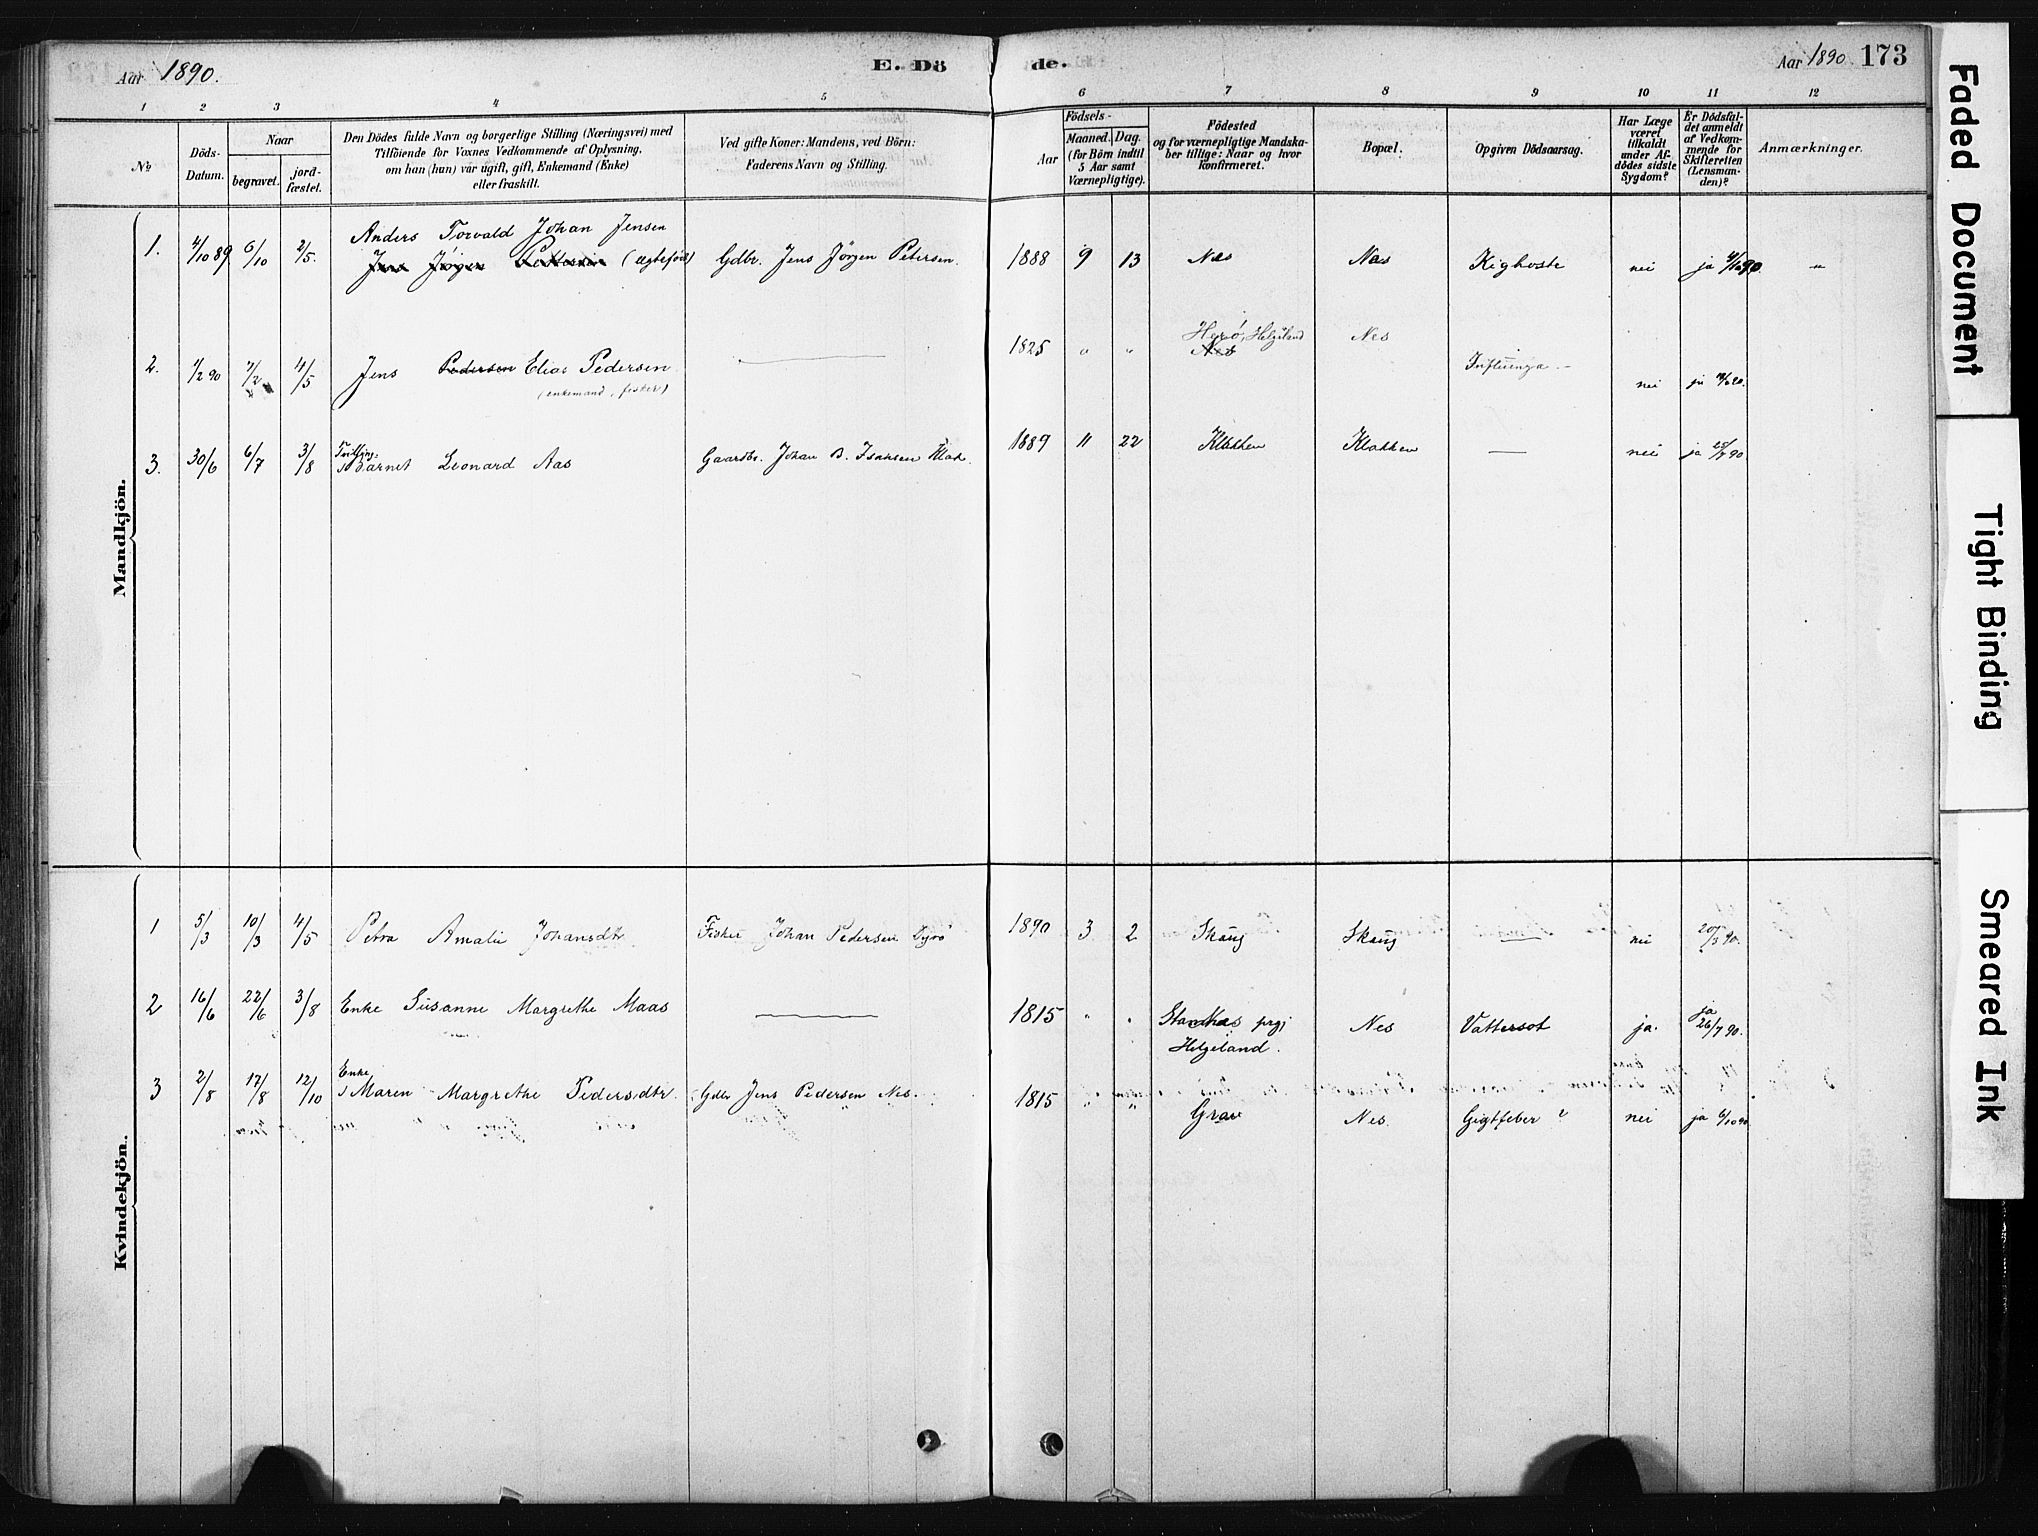 Aar 1890.
E. Dö de.
Aar 1890. 173
1 2 3 4 5 6 7 8 9 10 11 12
No
Döds-Datum.
Naar
begravet.
jord-fæstet.
Den Dödes fulde Navn og borgerlige Stilling (Næringsvei) med
Tilföiende for Voxnes Vedkommende af Oplysning,
om han (hun) var ugift, gift, Enkemand (Enke)
eller fraskilt.
Ved gifte Koner: Mandens, ved Börn:
Faderens Navn og Stilling.
Födsels-
Aar
Maaned. Dag.
(for Börn indtil
5 Aar samt
Værnepligtige).
Födested
og for værnepligtige Mandska-
ber tillige: Naar og hvor
konfirmeret.
Bopæl.
Opgiven Dödsaarsag.
Har Læge
været
tilkaldt
under Af-
dödes sidste
Sygdom?
Er Dödsfal-
det anmeldt
af Vedkom-
mende for
Skifteretten
(Lensman-
den)?
Anmærkninger.
Mandkjön.
1. 4/10 89 6/10 2/5. Anders Torvald Johan Jensen
Jens Jörgen Pettersen (ægtefød) Gdbr. Jens Jörgen Petersen. 1888 9 13 Næs Næs Kighoste nei ja
2. 1/2 90 7/2 4/5 Jens Pedersen Elias Pedersen
(enkemand, fisker) 1825 " " Herö, Helgeland
Nes Nes Influenza — nei ja
3. 30/6 6/7 3/8 Tvilling:
Barnet Leonard Aas Gaardbr. Johan B. Isaksen Klak. 1889 11 22 Klakken Klakken — nei ja 25/7 90
Kvindekjön.
1 5/3 10/3 4/5 Petra Amalie Johansdtr Fisker Johan Pedersen Dyrö 1890 3 2 Skaug Skaug — nei 20/3 90.
2 16/6 22/6 3/8 Enke Susanne Margrethe Maas — 1815 " " Stamnæs prgj
Helgeland. Nes Vattersot ja. ja
26/7 90.
3 2/8 17/8 12/10 Enke
Maren Margrethe Pedersdtr. Gdbr Jens Pedersen Nes. 1815 " " Grav Nes. Gigtfeber ? nei ja 6/10 90
Faded Document
Tight Binding
Smeared Ink